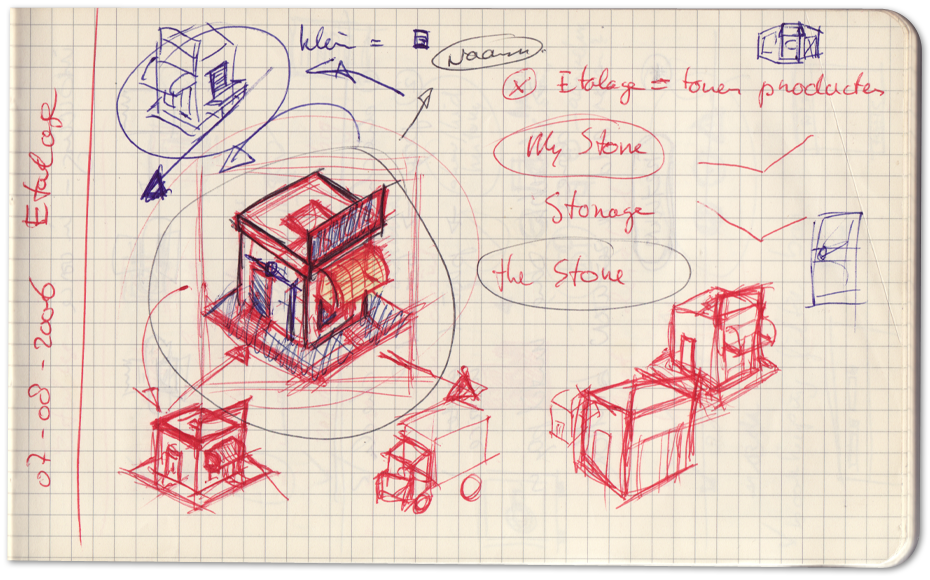 07-08-2006 Etalage
klein =
Naam
x Etalage = tonen producten
My Store
Storage
the Store